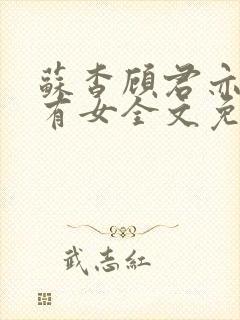 蘇杳顧君亦
有女全文免
武志紅